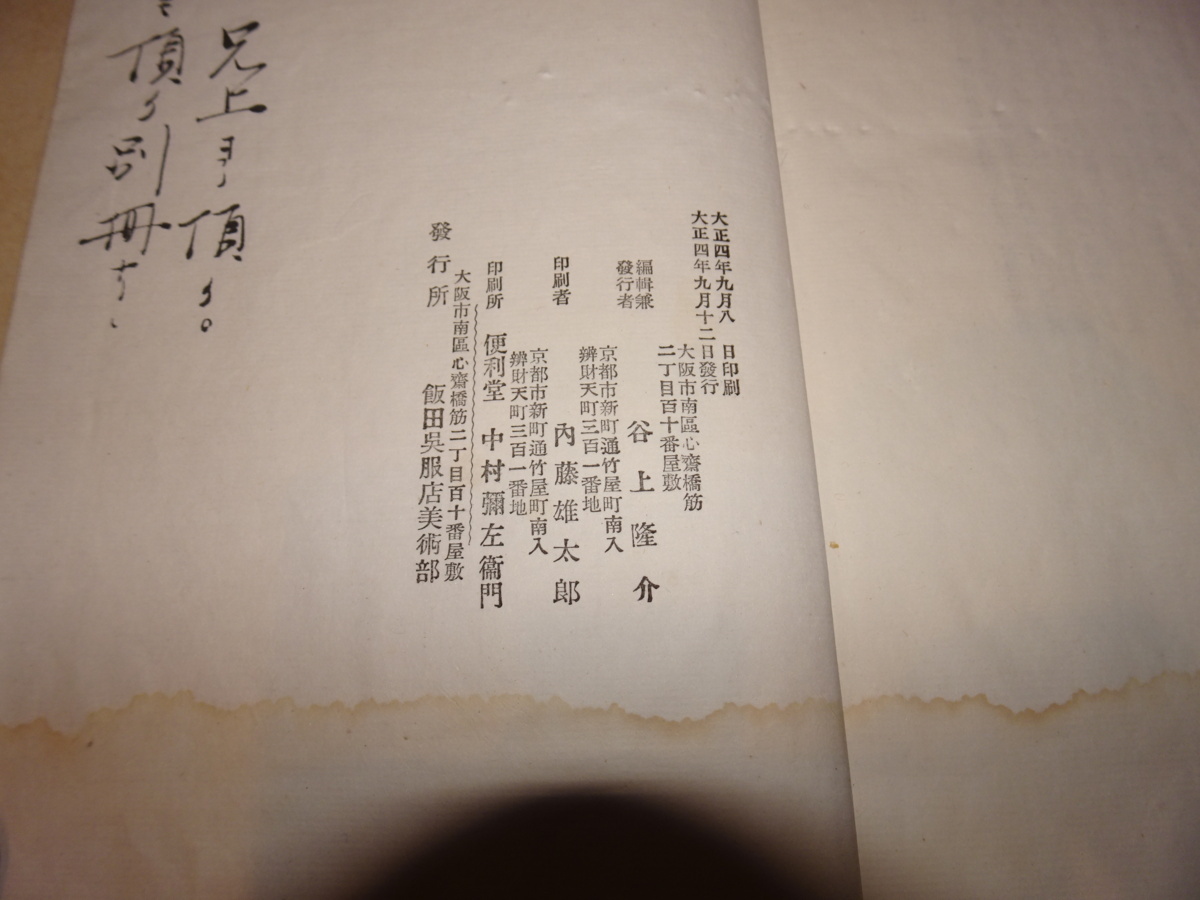 大正四年九月八　日印刷
大正四年九月十二日發行
大阪市南區心齋橋筋
二丁目百十番屋敷
編輯兼
發行者
谷上隆介
京都市新町通竹屋町南入
辨財天町三百一番地
印刷者
內藤雄太郎
京都市新町通竹屋町南入
辨財天町三百一番地
印刷所
便利堂　中村彌左衞門
大阪市南區心齋橋筋二丁目百十番屋敷
發行所
飯田吳服店美術部
兄上ヨリ頂く。
頂く別冊